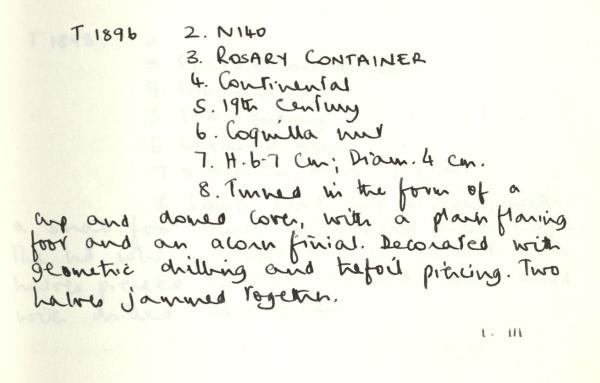 T 1896 2. N140
3. ROSARY CONTAINER
4. Continental
5. 19th Century
6. Coquilla nut
7. H. 6.7 cm; Diam. 4 cm.
8. Turned in the form of a
cup and domed cover, with a plain flaring
foot and an acorn finial. Decorated with
geometric drilling and trefoil piercing. Two
halves jammed together.